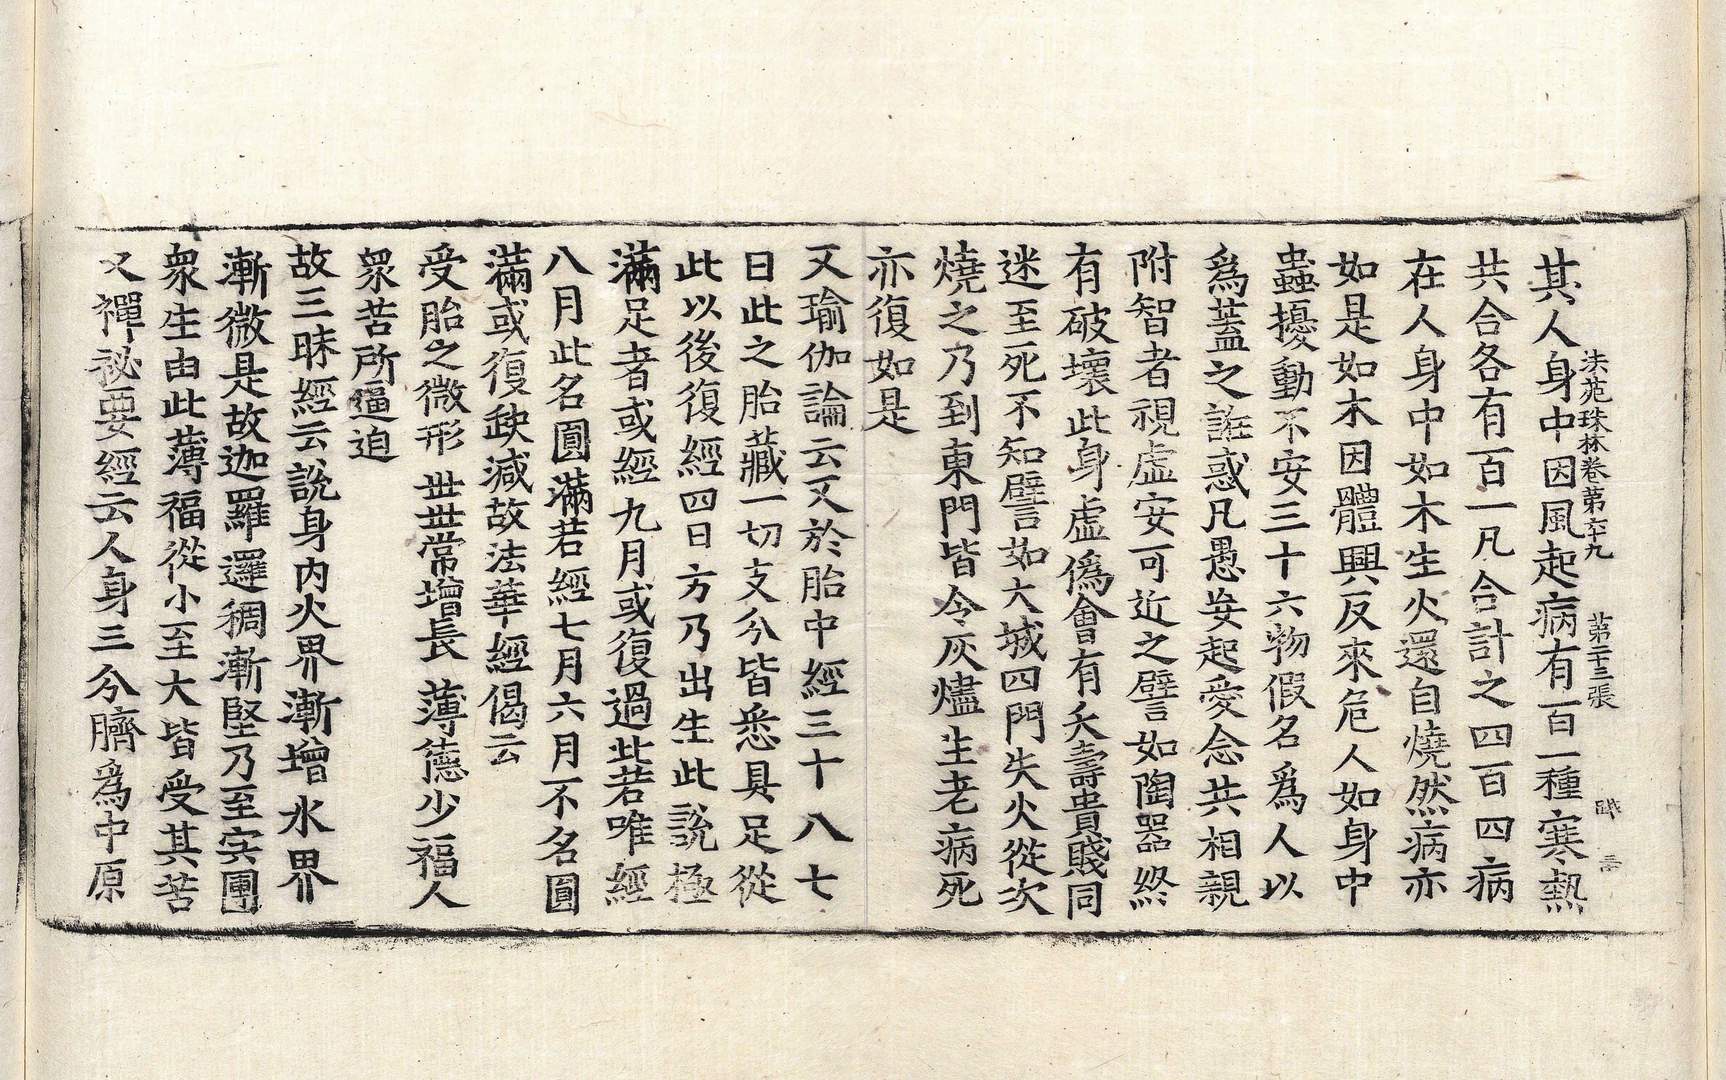 法苑珠林卷第六十九　第二十三張
其人身中因風起病有百一種寒熱
共合各有百一凡合計之四百四病
在人身中如木生火還自燒然病亦
如是如木因體興反來危人如身中
蟲擾動不安三十六物假名爲人以
爲蓋之誑惑凡愚妄起愛念共相親
附智者視虛安可近之譬如陶器終
有破壞此身虛僞會有夭壽貴賤同
迷至死不知譬如大城四門失火從次
燒之乃到東門皆令灰燼生老病死
亦復如是
又瑜伽論云又於胎中經三十八七
日此之胎藏一切支分皆悉具足從
此以後復經四日方乃出生此說極
滿足者或經九月或復過此若唯經
八月此名圓滿若經七月六月不名圓
滿或復缺減故法華經偈云
受胎之微形 世世常增長 薄德少福人
衆苦所逼迫
故三昧經云說身內火界漸增水界
漸微是故迦羅邏稠漸堅乃至宍團
衆生由此薄福從小至大皆受其苦
又禪祕要經云人身三分臍爲中原